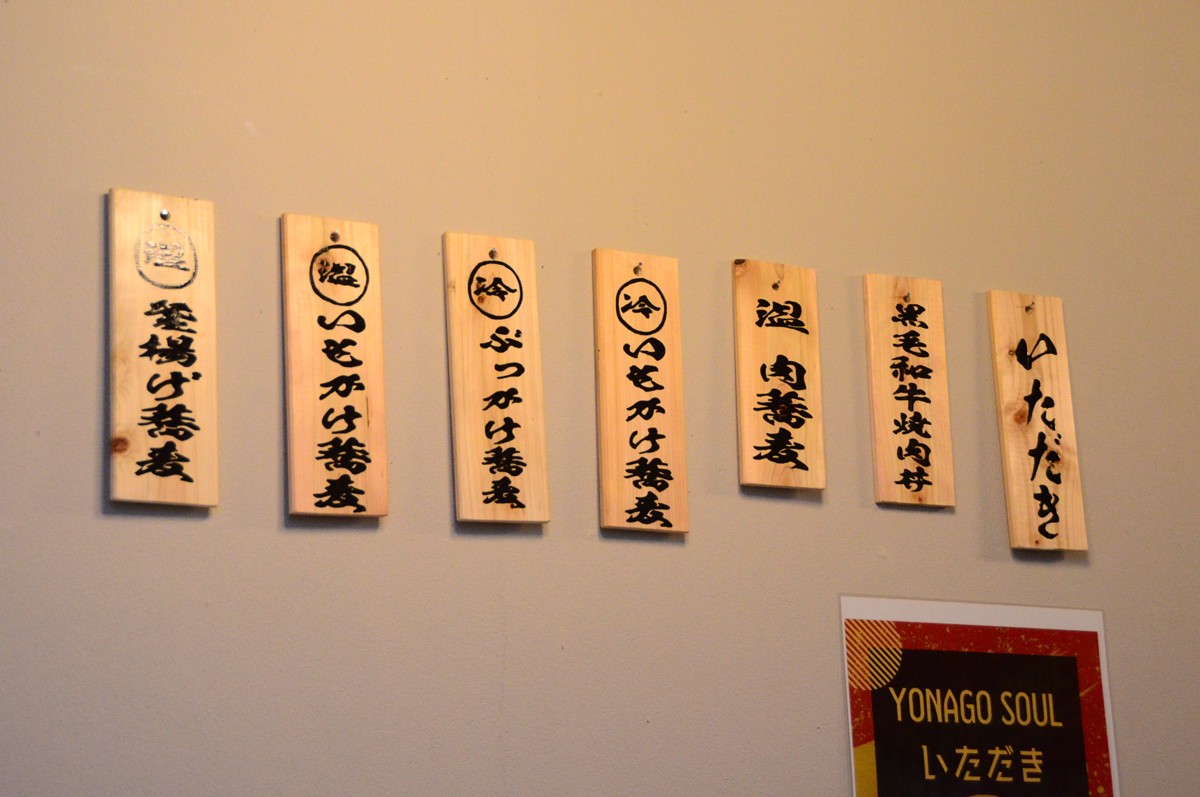 温
釜揚げ蕎麦
温
いもかけ蕎麦
冷
ぶっかけ蕎麦
冷
いもかけ蕎麦
温 肉蕎麦
黒毛和牛焼肉丼
いただき
YONAGO SOUL
いただき